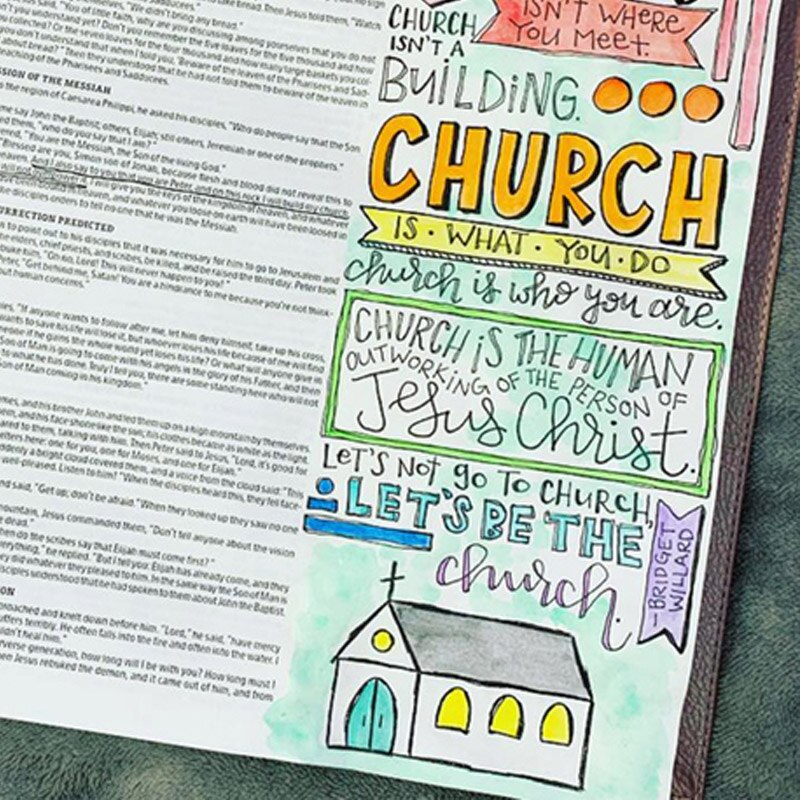 said. "You of little faith, why are you discussing among yourselves that you do
"Beware of the leaven of the Pharisees and Sad-
teaching of the Pharisees and Sadducees.
SSION OF THE MESSIAH
the region of Caesarea Philippi, he asked his disciples, "Who do people say that the Son
me say John the Baptist; others, Elijah; still others, Jeremiah or one of the prophets."
"who do you say that I am?"
"You are the Messiah, the Son of the living God."
"Blessed are you, Simon son of Jonah, because flesh and blood did not reveal this to
And I also say to you that you are Peter, and on this rock I will build my church,
I will give you the keys of the kingdom of heaven, and whatever
and whatever you loose on earth will have been loosed in
disciples orders to tell no one that he was the Messiah.
URRECTION PREDICTED
to point out to his disciples that it was necessary for him to go to Jerusalem and
elders, chief priests, and scribes, be killed, and be raised the third day. Peter took
"Oh no, Lord! This will never happen to you!"
"Get behind me, Satan! You are a hindrance to me because you're not think-
human concerns."
"If anyone wants to follow after me, let him deny himself, take up his cross,
wants to save his life will lose it, but whoever loses his life because of me will find
if he gains the whole world yet loses his life? Or what will anyone give in
Son of Man is going to come with his angels in the glory of his Father, and then
to what he has done. Truly I tell you, there are some standing here who will not
Son of Man coming in his kingdom."
and his brother John and led them up on a high mountain by themselves
and his face shone like the sun; his clothes became as white as the light.
to them, talking with him. Then Peter said to Jesus, "Lord, it's good for
here: one for you, one for Moses, and one for Elijah."
a bright cloud covered them, and a voice from the cloud said: "This
well-pleased. Listen to him!" When the disciples heard this, they fell face-
and said, "Get up; don't be afraid." When they looked up they saw no one
mountain, Jesus commanded them, "Don't tell anyone about the vision
dead."
do the scribes say that Elijah must come first?"
everything," he replied. "But I tell you: Elijah has already come, and they
did whatever they pleased to him. In the same way the Son of Man is
disciples understood that he had spoken to them about John the Baptist.
approached and knelt down before him. "Lord," he said, "have mercy
suffers terribly. He often falls into the fire and often into the water. I
heal him."
perverse generation, how long will I be with you? How long must I
Then Jesus rebuked the demon, and it came out of him, and from
ISN'T WHERE
YOU MEET.
CHURCH
ISN'T A
BUILDING.
CHURCH
IS · WHAT · YOU · DO
church is who you are.
CHURCH IS THE HUMAN
OUTWORKING OF THE PERSON OF
Jesus Christ.
LET'S NOT GO TO CHURCH,
LET'S BE THE
church.
—BRIDGET
WILLARD